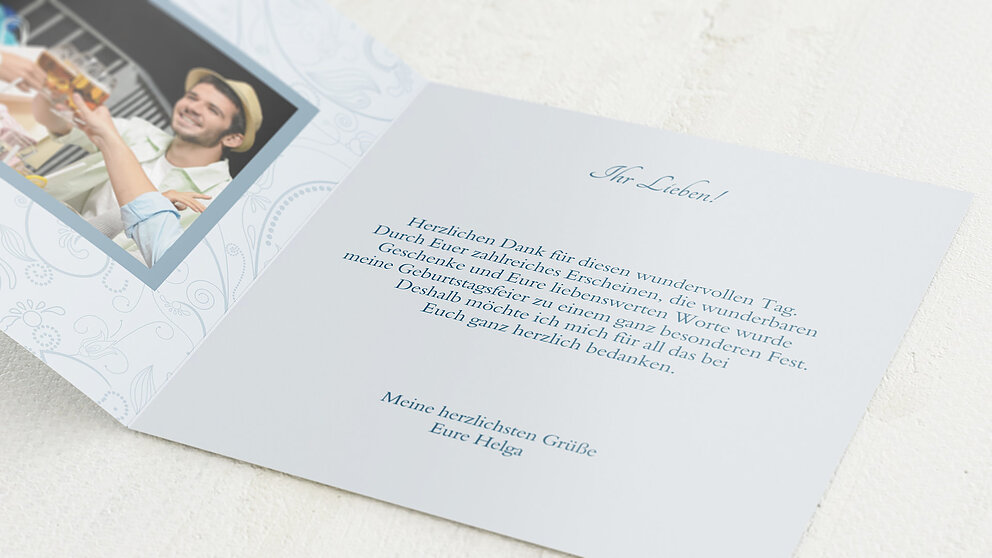 Ihr Lieben!
Herzlichen Dank für diesen wundervollen Tag.
Durch Euer zahlreiches Erscheinen, die wunderbaren
Geschenke und Eure liebenswerten Worte wurde
meine Geburtstagsfeier zu einem ganz besonderen Fest.
Deshalb möchte ich mich für all das bei
Euch ganz herzlich bedanken.
Meine herzlichsten Grüße
Eure Helga